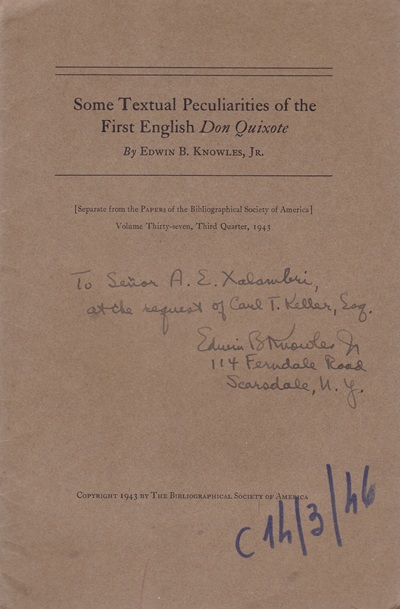 Some Textual Peculiarities of the
First English Don Quixote
By Edwin B. Knowles, Jr.
[Separate from the Papers of the Bibliographical Society of America]
Volume Thirty-seven, Third Quarter, 1943
To Señor A. E. Xalambri,
at the request of Carl T. Keller, Esq.
Edwin B Knowles Jr
114 Ferndale Road
Scarsdale, N. Y.
Copyright 1943 by The Bibliographical Society of America
C 14/3/46